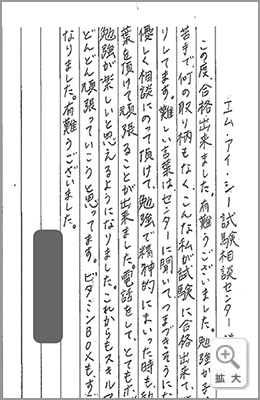 エム・アイ・シー試験相談センター
この度、合格出来ました。有難うございました。勉強が
苦手で何の取り柄もなく、こんな私が試験に合格出来て、
りしてます。難しい言葉は、センターに聞いて、つまづきそうにな
優しく相談にのって頂けて、勉強で精神的にまいった時も、
葉を頂けて頑張ることが出来ました。電話をして、とてもホ
勉強が楽しいと思えるようになりました。これからもスキルア
どんどん頑張っていこうと思ってます。ビタミンBOXも、す
なりました。有難うございました。
拡大